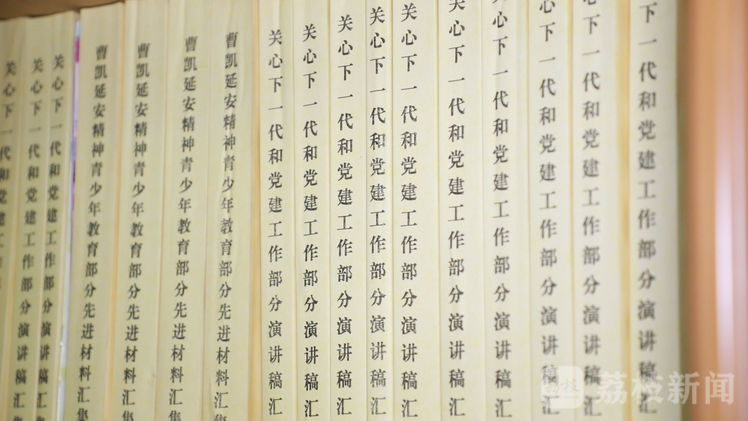 关心下一代和党建工作
关心下一代和党建工作部分演讲稿
关心下一代和党建工作部分演讲稿
曹凯延安精神青少年教育部分先进材料汇集
曹凯延安精神青少年教育部分先进材料汇集
曹凯延安精神青少年教育部分先进材料汇集
曹凯延安精神青少年教育部分先进材料汇集
关心下一代和党建工作部分演讲稿汇
关心下一代和党建工作部分演讲稿汇
关心下一代和党建工作部分演讲稿汇
关心下一代和党建工作部分演讲稿汇
关心下一代和党建工作部分演讲稿汇
关心下一代和党建工作部分演讲稿汇
心下一代和党建工作部分演讲稿汇
心下一代和党建工作部分演讲稿汇
心下一代和党建工作部分演讲稿汇
下一代和党建工作部分演讲稿汇
荔枝新闻